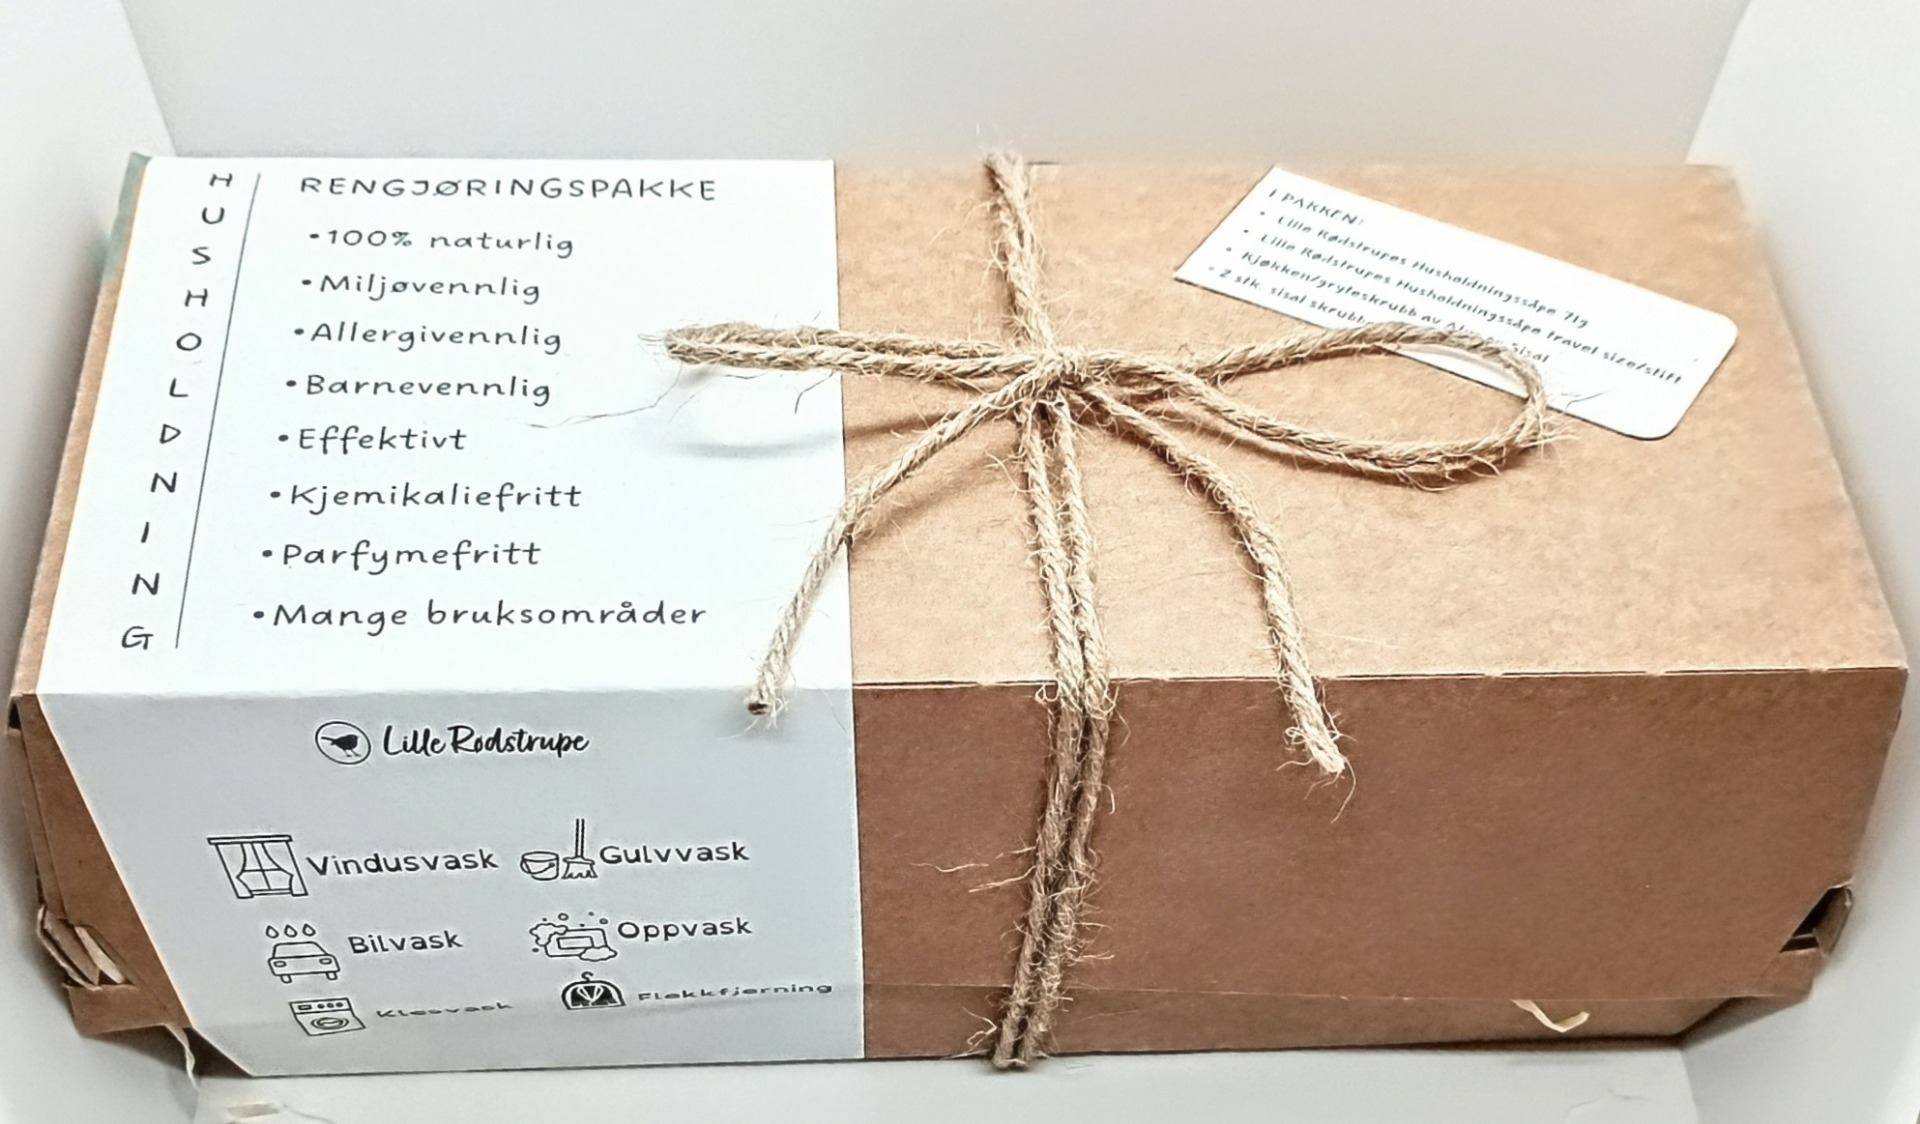 HUSHOLDNING
RENGJØRINGSPAKKE
•100% naturlig
•Miljøvennlig
•Allergivennlig
•Barnevennlig
•Effektivt
•Kjemikaliefritt
•Parfymefritt
•Mange bruksområder
I PAKKEN:
• Lille Rødstrupes Husholdningssåpe 71g
• Lille Rødstrupes Husholdningssåpe travel size/stift
• Kjøkken/gryteskrubb av Sisal
• 2 stk. sisal
Lille Rødstrupe
Vindusvask Gulvvask
Bilvask Oppvask
Klesvask Flekkfjerning